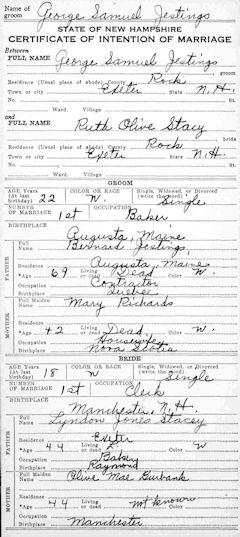 Name of groom George Samuel Jestings
STATE OF NEW HAMPSHIRE
CERTIFICATE OF INTENTION OF MARRIAGE
Between
FULL NAME George Samuel Jestings
groom
Residence (Usual place of abode) County Rock
Town or city Exeter State N.H.
No. St.
Ward. Village
and
FULL NAME Ruth Olive Stacy
bride
Residence (Usual place of abode) County Rock
Town or city Exeter State N.H.
No. St.
Ward. Village
GROOM
AGE Years (At last birthday) 22 COLOR OR RACE W. Single, Widowed, or Divorced (write the word) Single
NUMBER OF MARRIAGE 1st OCCUPATION Baker
BIRTHPLACE Augusta, Maine
FATHER
Full Name Bernard Jestings
Residence Augusta, Maine
*Age 69 Living or dead Dead Color W.
Occupation Contractor
Birthplace Quebec
MOTHER
Full Maiden Name Mary Richards
Residence
*Age 42 Living or dead Dead Color W.
Occupation Housewife
Birthplace Nova Scotia
BRIDE
AGE Years (At last birthday) 18 COLOR OR RACE W Single, Widowed, or Divorced (write the word) Single
NUMBER OF MARRIAGE 1st OCCUPATION Clerk
BIRTHPLACE Manchester, N.H.
FATHER
Full Name Lyndon Jones Stacey
Residence Exeter
*Age 44 Living or dead L. Color W
Occupation Baker
Birthplace Raymond
MOTHER
Full Maiden Name Olive Mae Burbank
Residence
*Age 44 Living or dead not known Color
Occupation
Birthplace Manchester